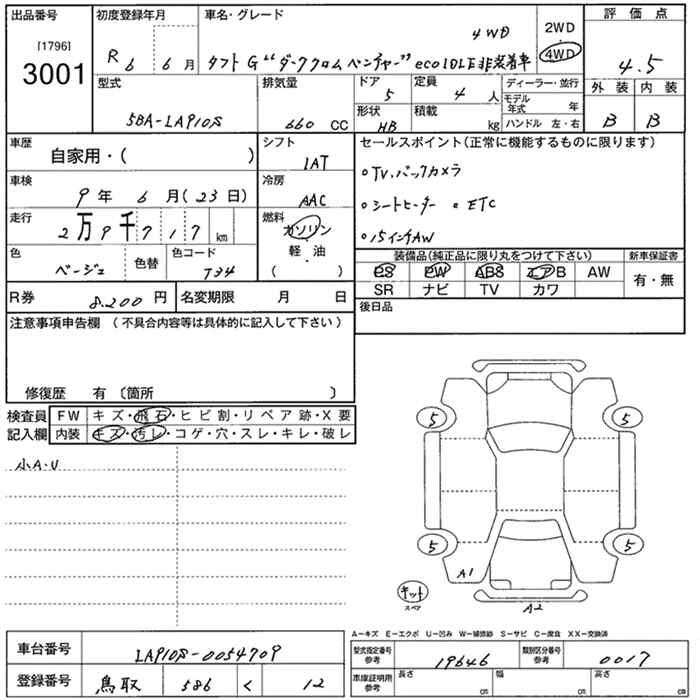 出品番号
[1796]
3001
初度登録年月
R 6 6 月
車名・グレード
4WD
タフト G "ダーククロム ベンチャー" eco IDLE非装着車
2WD
・
4WD
評価点
4.5
外装 内装
B B
型式
5BA-LA910S
排気量
660 CC
ドア
5
定員
4 人
形状
HB
積載
kg
ディーラー・並行
モデル年式 年
ハンドル 左・右
車歴
自家用・( )
シフト
IAT
車検
9 年 6 月(23日)
冷房
AAC
走行
2 万 9 千 7 1 7 km
燃料
ガソリン
軽・油
( )
色
ベージュ
色替
色コード
T34
R券
8.200 円
名変期限 月 日
セールスポイント(正常に機能するものに限ります)
○TV.バックカメラ
○シートヒーター ○ETC
○15インチAW
装備品(純正品に限り丸をつけて下さい)
新車保証書
PS PW ABS エアB AW
SR ナビ TV カワ
有・無
後日品
注意事項申告欄(不具合内容等は具体的に記入して下さい)
修復歴 有〔箇所 〕
検査員
記入欄
FW キズ・飛石・ヒビ割・リペア跡・X要
内装 キズ・汚レ・コゲ・穴・スレ・キレ・破レ
小A・U
5 5
5 5
A1
キット
スペア
A2
A―キズ E―エクボ U―凹み W―補修跡 S―サビ C―腐食 XX―交換済
車台番号
LA910S-0054709
登録番号
鳥取 586 く 12
型式指定番号
参考
19646
類別区分番号
参考
0017
車庫証明用
参考
長さ cm
幅 cm
高さ cm